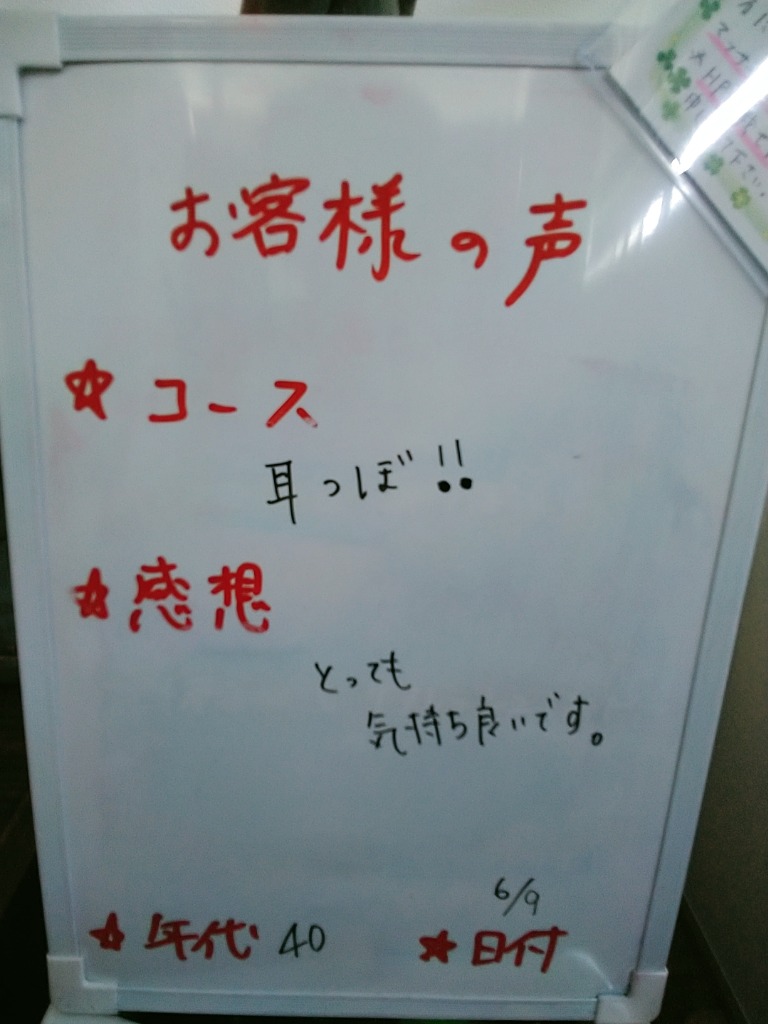 お客様の声
☆ コース
耳つぼ!!
☆ 感想
とっても
気持ち良いです。
6/9
☆ 年代 40 ☆ 日付
下さい。